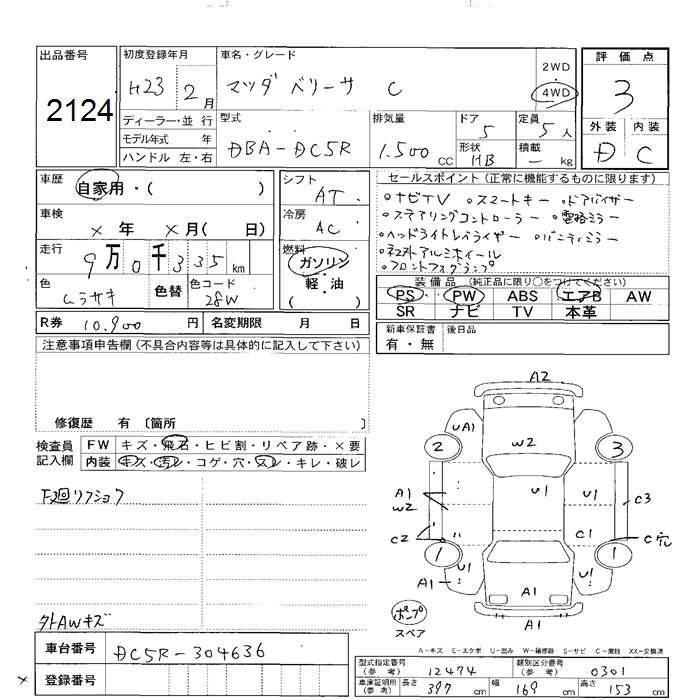 出品番号
2124
初度登録年月
H23 2月
ディーラー・並 行
モデル年式 年
ハンドル 左・右
車名・グレード
マツダ ベリーサ C
2WD
4WD
型式
DBA-DC5R
排気量
1.500 CC
ドア
5
形状
HB
定員
5人
積載
- kg
評価点
3
外装 内装
D C
車歴
自家用・( )
車検
× 年 × 月( 日)
走行
9万0千335km
色
ムラサキ
色替
色コード
28W
シフト
AT
冷房
AC
燃料
ガソリン
軽・油
( )
セールスポイント(正常に機能するものに限ります)
○ナビTV ○スマートキー ○ドアバイザー
○ステアリングコントローラー ○電格ミラー
○ヘッドライトレベライザー ○バニティミラー
○社外アルミホイール
○フロントフォグランプ
装備品(純正品に限り○をつけてください)
PS PW ABS エアB AW
SR ナビ TV 本革
R券 10.900円
名変期限 月 日
新車保証書
有・無
後日品
注意事項申告欄(不具合内容等は具体的に記入して下さい)
修復歴 有〔箇所 〕
検査員
記入欄
FW キズ・飛石・ヒビ割・リペア跡・×要
内装 キズ・汚レ・コゲ・穴・スレ・キレ・破レ
下廻リフショク
外AWキズ
A2
UA1
2
W2
3
A1
W2
U1
U1
C3
C2
C1
C穴
1
1
U1
U1
A1
A1
A1
ポンプ
スペア
A-キズ E-エクボ U-凹み W-補修跡 S-サビ C-腐蝕 XX-交換済
車台番号
DC5R-304636
登録番号
型式指定番号
(参考)
12474
類別区分番号
(参考)
0301
車庫証明用
(参考)
長さ 397cm
幅 169cm
高さ 153cm